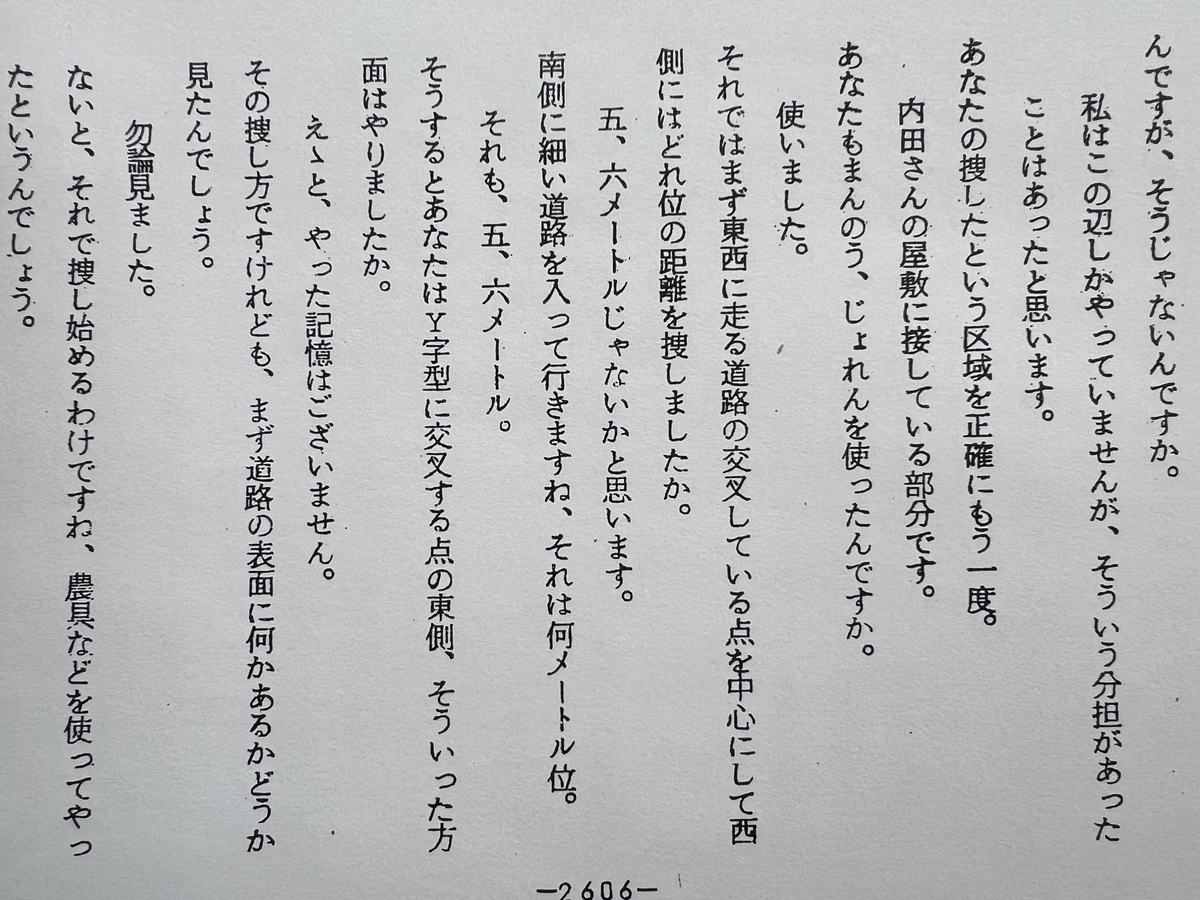 んですが、そうじゃないんですか。
私はこの辺しかやっていませんが、そういう分担があった
ことはあったと思います。
あなたの捜したという区域を正確にもう一度。
内田さんの屋敷に接している部分です。
あなたもまんのう、じょれんを使ったんですか。
使いました。
それではまず東西に走る道路の交叉している点を中心にして西
側にはどれ位の距離を捜しましたか。
五、六メートルじゃないかと思います。
南側に細い道路を入って行きますね、それは何メートル位。
それも、五、六メートル。
そうするとあなたはY字型に交叉する点の東側、そういった方
面はやりましたか。
えゝと、やった記憶はございません。
その捜し方ですけれども、まず道路の表面に何かあるかどうか
見たんでしょう。
勿論見ました。
ないと、それで捜し始めるわけですね、農具などを使ってやっ
たというんでしょう。
—2606—